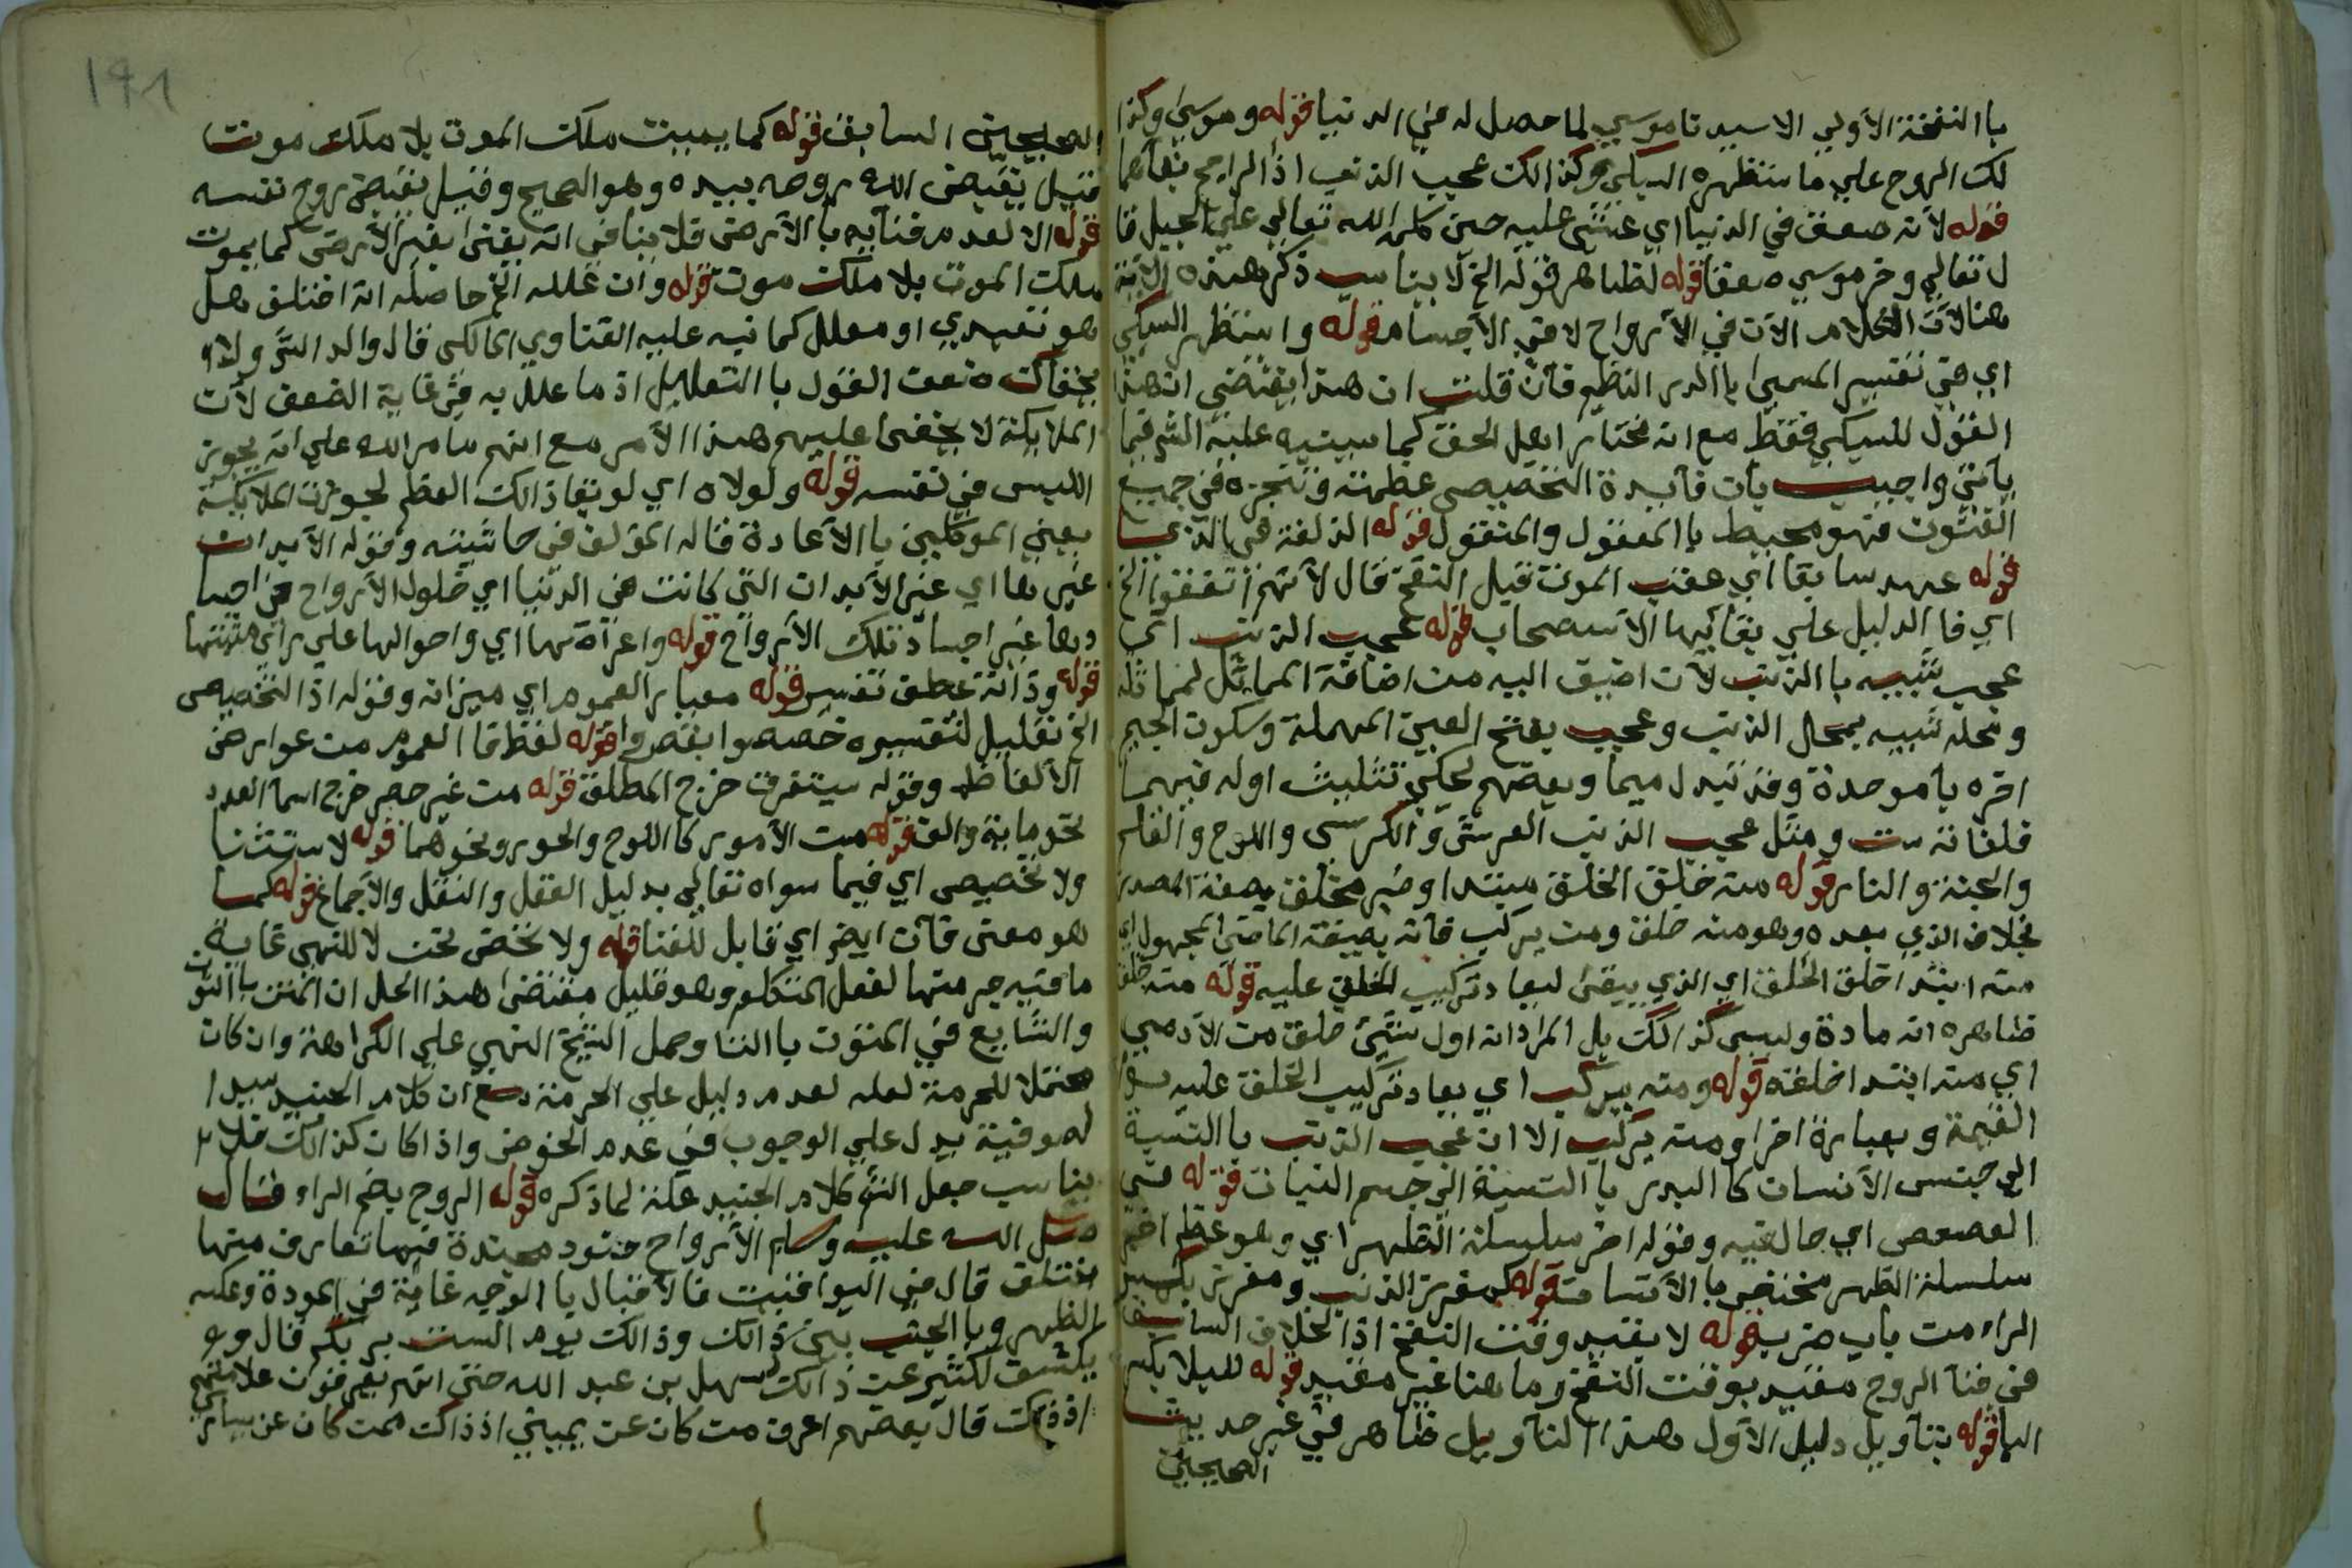 باالنفخة الأولي الا سيدنا موسي لما حصل له في الدنيا قوله وموسى وكذا
لك الروح علي ما ستظهره السبكي وكذالك عجب الذنب اذ الراجح بقاهما
قوله لانه صعق في الدنيا اي غشى عليه حين كلم الله تعالي علي الجبل قا
ل تعالي وخر موسي صعقا قوله لظاهر قوله الخ لا يناسب ذكر هذه الاية
هنا لان الكلام الآن في الأرواح لا في الأجسام قوله واستظهر السبكي
اي في تفسير المسمى باالدر النظيم فان قلت ان هذا يقتضي ان هذا
القول للسبكي فقط مع انه مختار اهل الحق كما سينبه عليه الش فيما
ياتي واجيب بان فايدة التخصيص عظمته وتبحره في جميع
الفنون فهو محيط باالمعقول والمنقول قوله الذ لغة في الذي
قوله عهد سابقا اي عقب الموت قبل النفخ قال لانهم اتفقوا الخ
اي فا الدليل علي بقائها الاستصحاب قوله عجب الذنب اي
عجب شبيه باالذنب لان اضيف اليه من اضافة المماثل لمماثله
ومحله شبيه بمحال الذنب وعجب بفتح العين المهملة وسكون الجيم
اخره باموحدة وقد تبدل ميما وبعضهم يحكي تثليث اوله فيهما
فلغاته ست ومثل عجب الذنب العرش والكرسى واللوح والقلم
والجنة والنار قوله منه خلق الخلق مبتدا وخبر مخلق بصفة المصدر
بخلاف الذي بعده وهو منه خلق ومن يركب فانه بصيغة الماضى المجهول اي
منه ابتدا خلق الخلق اي الذي يبقى ليعاد تركيب الخلق عليه قوله منه خلق
ظاهره انه مادة وليس كذالك بل المراد انه اول شيئ خلق من الآدمي
اي منه ابتدا خلقته قوله ومنه يركب اي يعاد تركيب الخلق عليه يوم
القيمة وبعبارة اخرا ومنه يركب الا ان عجب الذنب باالنسبة
الي جنس الأنسان كا البدر باالنسبة الي جسم النبات قوله في
العصعص اي حالة فيه وقوله اخر سلسلة الظهر اي وهو عظم اخر
سلسلة الظهر مختص باالأنسان قوله كمغرز الذنب ومغرز بكسر
الراء من باب ضرب قوله لا بقيد وقت النفخ اذ الخلاف السابق
في فنآ الروح مقيد بوقت النفخ وما هنا غير مقيد قوله لليلا يكسر
اليا قوله بتأويل دليل الأول هذا التأويل ظاهر في غير حديث
الصحيحين
191
الصحيحين السابق قوله كما يميت ملك الموت بلا ملك موت
قيل يقبض الله روحه بيده وهو الصحيح وقيل يقبض روح نفسه
قوله الا لعدم فنآيه باالأرض فلا ينافي انه يفنى بغير الأرض كما يموت
ملك الموت بلا ملك موت قوله وان علله الخ حاصله انه اختلف هل
هو تعبدي او معلل كما نبه عليه الفتاوي المالكى قال والد الش ولا
يخفاك ضعف القول باالتعليل اذ ما علل به في غاية الضعف لان
الملايكة لا يخفى عليهم هذا الأمر مع انهم بامر الله علي انه يجوز
اللبس في نفسه قوله ولولاه اي لو بقا ذالك العظم لجوزت الملايكة
يعني الموكلين باالأعادة قاله المؤلف في حاشيته وقوله الأبدان
غيرها اي غير الأبدان التي كانت في الدنيا اي حلول الأرواح في اجسا
دها غير اجساد تلك الأرواح قوله واعراضها اي واحوالها علي راي مثبتها
قوله وذاته عطف تفسير قوله معيار العموم اي ميزانه وقوله اذ التخصيص
الخ تعليل لتفسيره خصصوا بقصروا قوله لفظ فا العموم من عوارض
الألفاظ وقوله يستغرق خرج المطلق قوله من غير حصر خرج اسما العدد
نحو ماية والف قوله من الأمور كا اللوح والحور ونحوهما قوله لاستثنا
ولا تخصيص اي فيما سواه تعالي بدليل العقل والنقل والأجماع قوله كما
هو معنى فان ايضر اي قابل للفنا قوله ولا نخض نحن لا للنهي غاية
ما فيه جرمنها لفعل المتكلم وهو قليل مقتضى هذا الحل ان المتن باالنون
والشايع في المتون باالتا وحمل الشيخ النهي علي الكراهة وان كان
محتملا للحرمة لعله لعدم دليل علي الحرمة مع ان كلام الجنيد سيد ا
لصوفية يدل علي الوجوب في عدم الخوض واذا كان كذالك فلا
يناسب جعل الش كلام الجنيد علة لما ذكره قوله الروح بضم الراء فقال
صلى الله عليه وسلم الأرواح جنود مجندة فيها تعارف منها
اختلف قال في اليواقيت فالأقبال باالوجه غاية في المودة وعكسه
الظهر وباالجنب بين ذالك وذالك يوم الست بربكم قال وقد
يكشف لكثير عن ذالك كسهل بن عبد الله حتى انهم يعرفون علامتهم
اذذاك قال بعضهم اعرف من كان عن يميني اذذاك ممن كان عن يساري